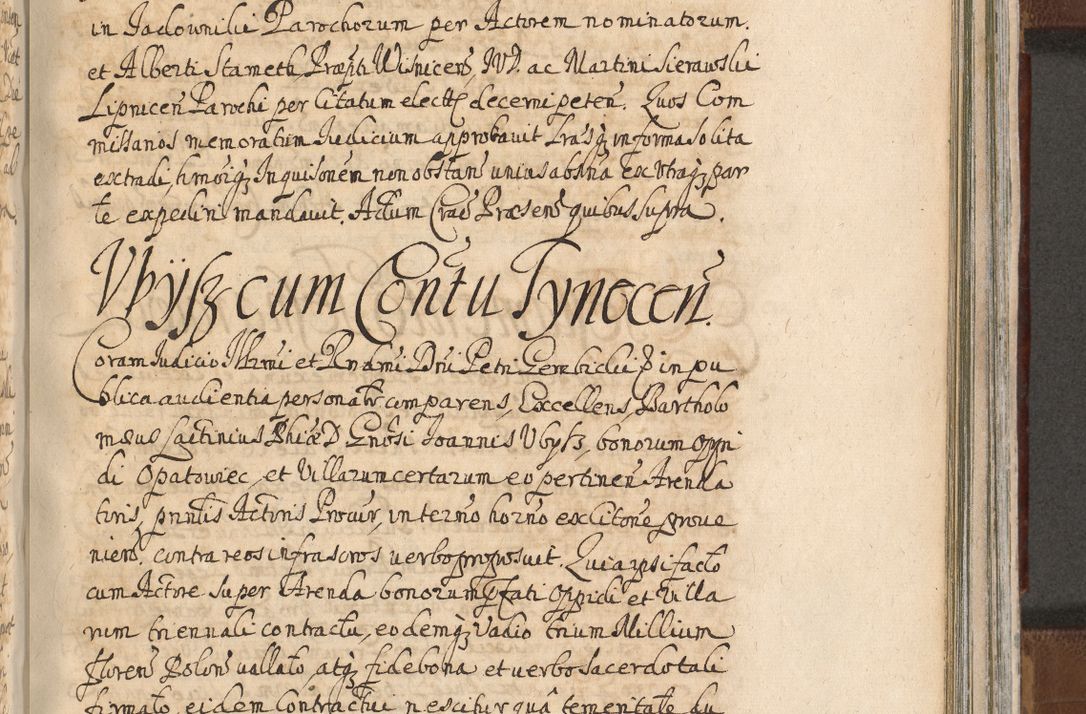 in Jadownilii Parochorum per Actorem nominatorum.
et Alberti Stameth Præpti Wisnicens, JVD. ac Martini Sierawslii
Lipnicen Parochi per Citatum elect decerni peten. Quos Com
missarios memoratum Iudicium approbavit Lrasq in forma solita
extradi, Inquisonem non obstan unius absna ex utraq par
te expediri mandavit. Actum Crac Præsens quibus supra.
Vbÿsz cum Contu Tynecen.
Coram Iudicio Illrmi et Rndmi Dni Petri Gembiclii P in pu
blica audientia personalr comparens, Excellens, Bartholo
mæus Lactinius Phiæ D Gnosi Joannis Vbysz, bonorum oppi
di Opatowiec, et Villarum certarum eo pertinen Arenda
toris, prntis Actoris Procur, in termo horno ex citone prove
niens, contra reos infrascros verbo proposuit. Quia ipsi facto
cum Actore super Arenda bonorum pfati Oppidi et Villa
rum triennali contractu, eodemq Vadio trium Millium
floren Polon vallato, atq fide bona et verbo sacerdotali
firmato, eidem Contractui nescitur quâ temeritate du